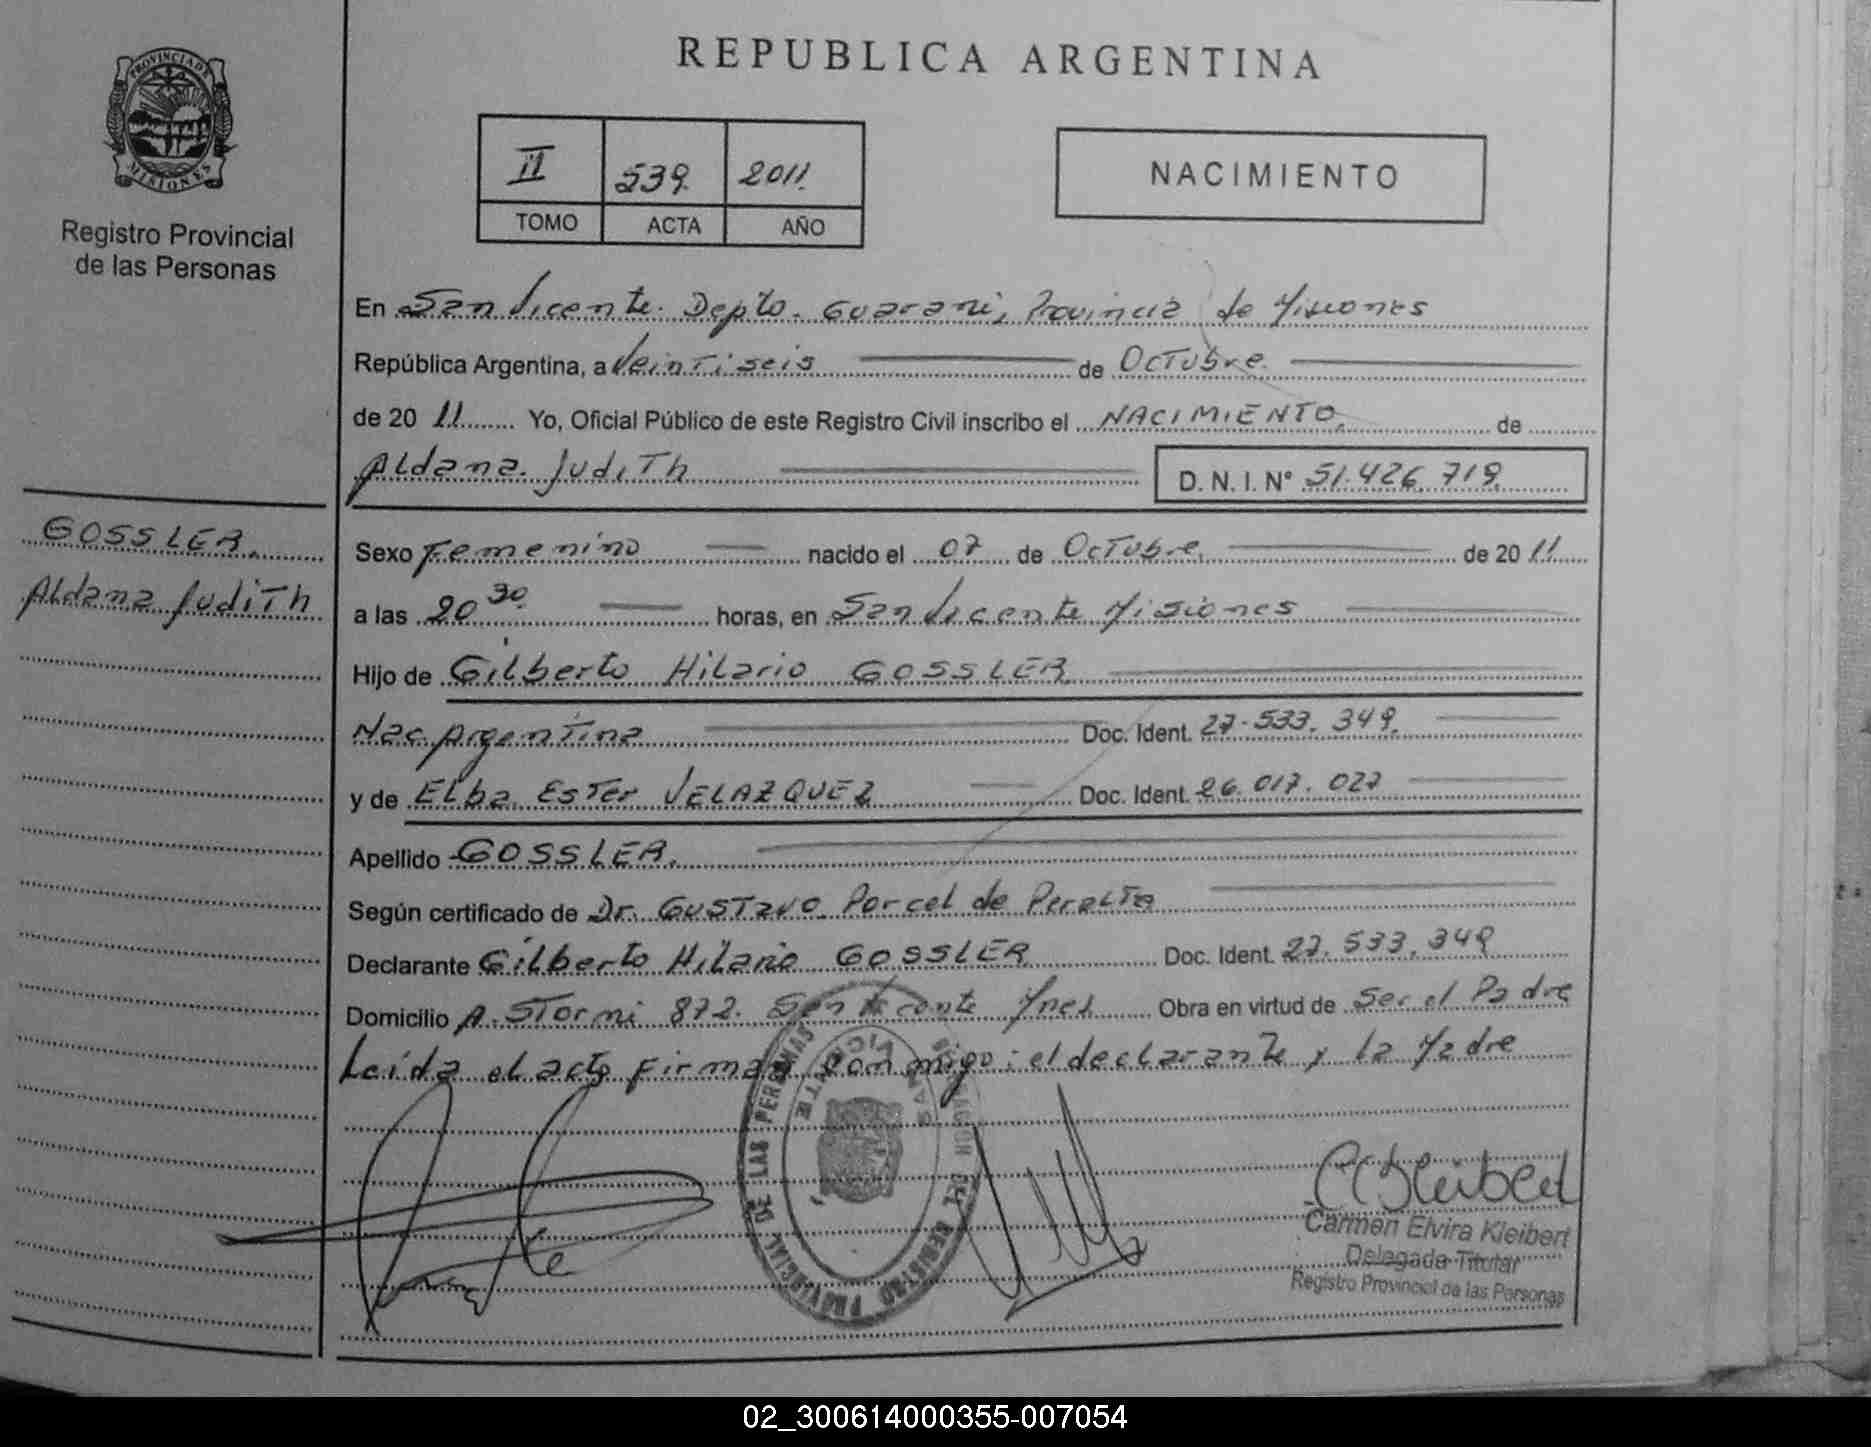 PROVINCIA DE
MISIONES
Registro Provincial
de las Personas
GOSSLER.
Aldana Judith
REPUBLICA ARGENTINA
II 539. 2011.
TOMO ACTA AÑO
NACIMIENTO
En San Vicente. Depto. Guarani, Provincia de Misiones
República Argentina, a Veintiseis de Octubre.
de 20 11 Yo, Oficial Público de este Registro Civil inscribo el NACIMIENTO. de
Aldana Judith D. N. I. N° 51.426.719.
Sexo Femenino nacido el 07 de Octubre. de 20 11
a las 20 30 horas, en San Vicente Misiones
Hijo de Gilberto Hilario GOSSLER
Nac Argentina Doc. Ident. 27.533.349.
y de Elba Ester VELAZQUEZ Doc. Ident. 26.017.027
Apellido GOSSLER.
Según certificado de Dr. Gustavo Porcel de Peralta
Declarante Gilberto Hilario GOSSLER Doc. Ident. 27.533.349
Domicilio A. Storni 872. San Vicente Mnes Obra en virtud de Ser el Padre
Leida el acta Firman conmigo: el declarante y la Madre
REGISTRO PROVINCIAL DE LAS PERSONAS
SAN VICENTE
Carmen Elvira Kleibert
Delegada Titular
Registro Provincial de las Personas
02_300614000355-007054